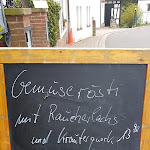 Gemüserösti
mit Räucherlachs
und Kräuterquark 13,80